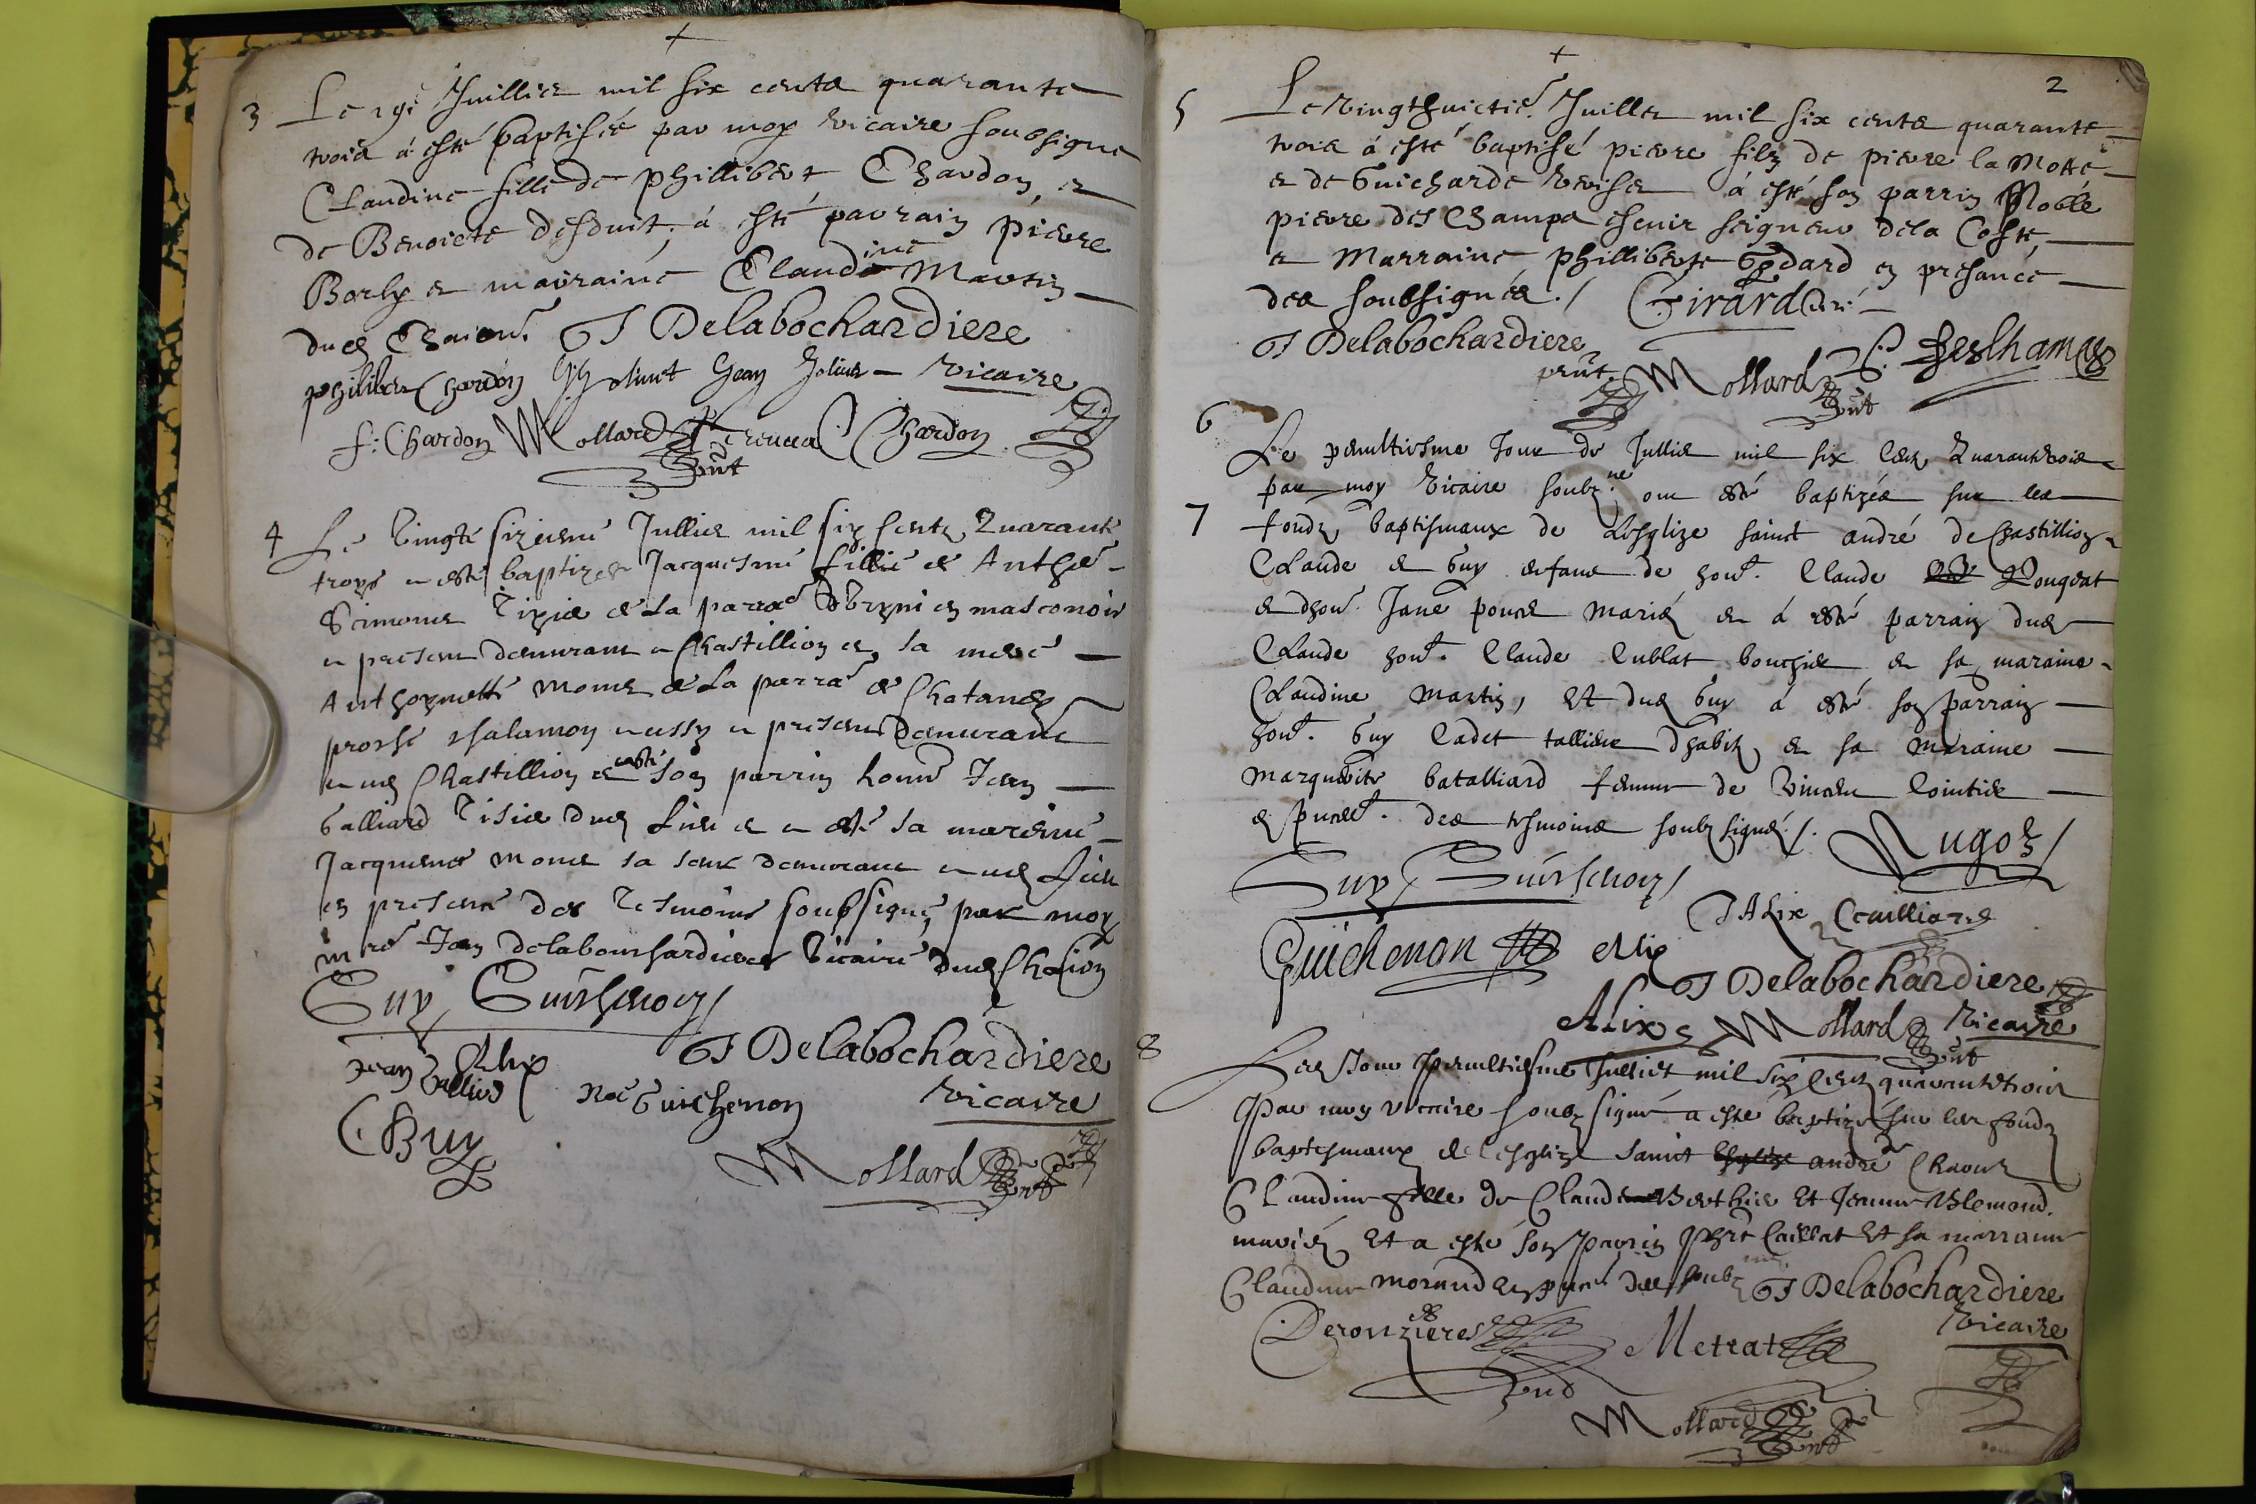 3 Le 19e Juillier mil six centz quarante
trois á esté baptisée par moy vicaire soubsigne
Claudine fille de phillibert Chardon, et
de Benoiste desduit, á esté parrain pierre
Borly et marraine Claudine Martin
dud Chaion. J Delabochardiere
philiber Chardon Jolivet Jean Vicaire
f: Chardon Mollard C Chardon
4 Le Vingte sizieme Jullie mil six sentz Quarante
troys a esté baptizee Jacquesme fillie de Anthe
Scimone Tixie de La parrae en masconois
a present demurant a Chastillion et sa mere
Anthoynette Mone de La parrae de Chatanay
proche chalamon aussy a present demurant
aud Chastillion et a esté son parrin honnē Jean
Galliard Tisie dud Lieu et a esté sa mareine
Jacquemet Mone sa seur demurant aud Lieu
en presence des Tesmoins soubsignes par moy
mre Jean delabouchardiere Vicaire dud Chaion
Guy Guichenon
J Delabochardiere
Jean Gallierd Alix Noe Guichenon Vicaire
C Buy
Mollard
2
5 Le Vingthuictie. Juillet mil six centz quarante
trois á esté baptisé pierre filz de pierre la Motte
et de Guicharde á esté son parrin Noble
pierre des Champs escuir seigneur de la Coste
et Marraine phillibertte Godard en presance
des soubsignés./ Girard Curé
J Delabochardiere
prnt Mollard P. Deschamps
6 Le penultiesme Jour de Jullie mil six Centz Quarantrois
par moy Vicaire soubz.ne ont esté baptizés sur les
7 fondz baptismaux de Lesglize sainct andré de Chastillion
Claude et Guy enfans de hon. Claude Pougeat
et dhon. Jane ponce mariés et á esté parrain dud
Claude hon. Claude Cublat bouchier et sa maraine
Claudine Martin, Et dud Guy á esté son parrain
hon. Guy Cadet tallieur dhabitz et sa maraine
Marguerite batalliard femme de Vincent Cointier
en pnce. des tesmoins soubz signés./.
Guy Guichenon
Guichenon Alix
J Delabochardiere
Alix Mollard Vicaire
8 Led Jour penultiesme Julliet mil six Centz quarantetrois
Par moy vicaire soubz signé a esté baptizé sur les fondz
baptismaux de lesglize sainct andré
Claudine fille de Claude Berthie Et Jeanne Blemond
mariés Et a esté son parrin Caillat Et sa marraine
Claudine Morand en pnce des soubz J Delabochardiere
Deronzieres Metrat Vicaire
Mollard